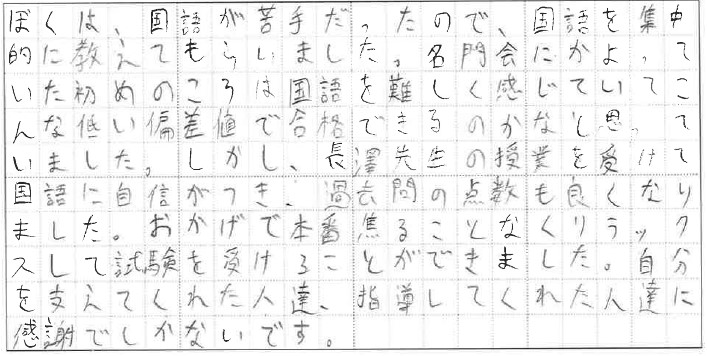 ぼくは、国語が苦手だったので、国語を集中
的に教えてもらいました。名門会にかよって
いた初めのころは国語を難しく感じていてこ
んな低い偏差値で合格できるのかなと思って
いました。しかし、長澤先生の授業を受けて
国語に自信がつき、過去問の点数も良くなり
ました。おかげで本番焦ることなくリラック
スして試験を受けることができました。自分
を支えてくれた人達、指導してくれた人達に
感謝でしかないです。